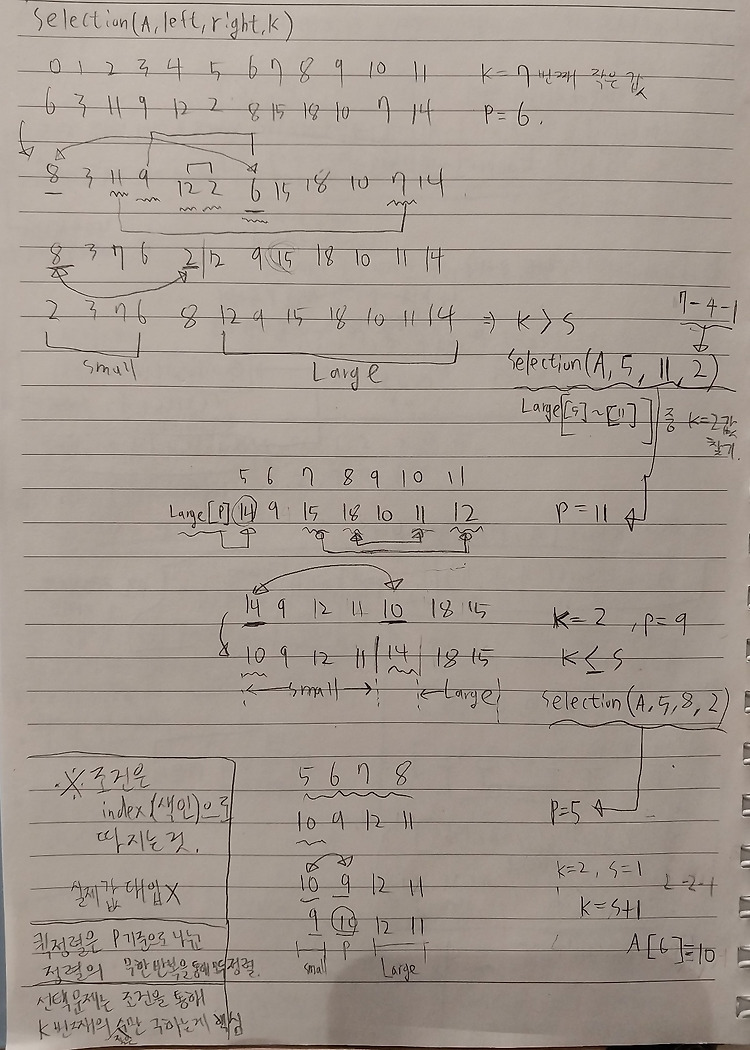 Selection(A,left,right,K)
0 1 2 3 4 5 6 7 8 9 10 11 K=7번째 작은 값
6 3 11 9 12 2 8 15 18 10 7 14 P=6.
8 3 11 9 12 2 6 15 18 10 7 14
8 3 7 6 2 | 12 9 15 18 10 11 14
7-4-1
2 3 7 6 8 12 9 15 18 10 11 14 ⇒ K > S
small Large
Selection(A, 5, 11, 2)
Large[[5]~[11]] 중 K=2값
찾기.
5 6 7 8 9 10 11
Large[P] 14 9 15 18 10 11 12 P=11
14 9 12 11 10 18 15 K=2, P=9
10 9 12 11 | 14 | 18 15 K ≤ S
small Large
Selection(A,5,8,2)
※ 조건은
index(색인)으로
따지는것.
실제값 대입 X
5 6 7 8
10 9 12 11 P=5
10 9 12 11 K=2, S=1
2-2-1
9 10 12 11 K=S+1
small P Large
A[6]=10
퀵정렬은 P기준으로 나눈
정렬의 무한반복을 통해 정렬.
선택문제는 조건을 통해
K번째의 작은 구하는게 핵심